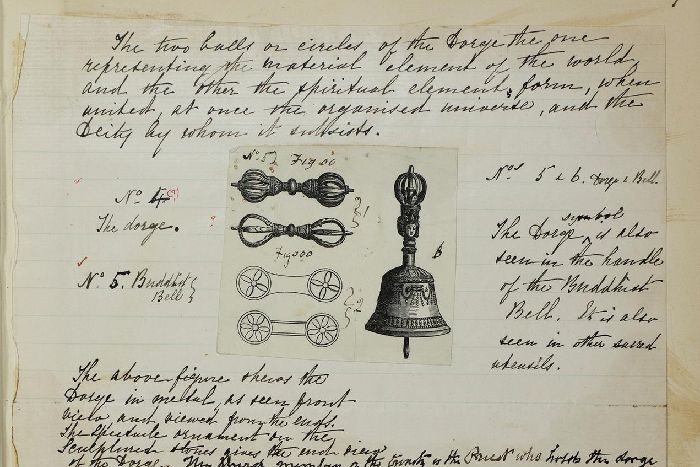 The two balls or circles of the Dorge the one
representing the material element of the world
and the other the spiritual element, form, when
united, at once the organised universe, and the
Deity by whom it subsists.
No. 5 Fig 00
No. 4
The dorge.
Fig 000
No. 5. Buddhist
Bell
Nos 5 & 6. Dorge & Bell.
The Dorge symbol is also
seen in the handle
of the Buddhist
Bell. It is also
seen in other sacred
utensils.
The above figure shews the
Dorge in metal, as seen front
view and viewed from the ends.
The Spectacle ornament on the
Sculptured stones gives the end view
of the Dorge. is the Priest who holds the dorge